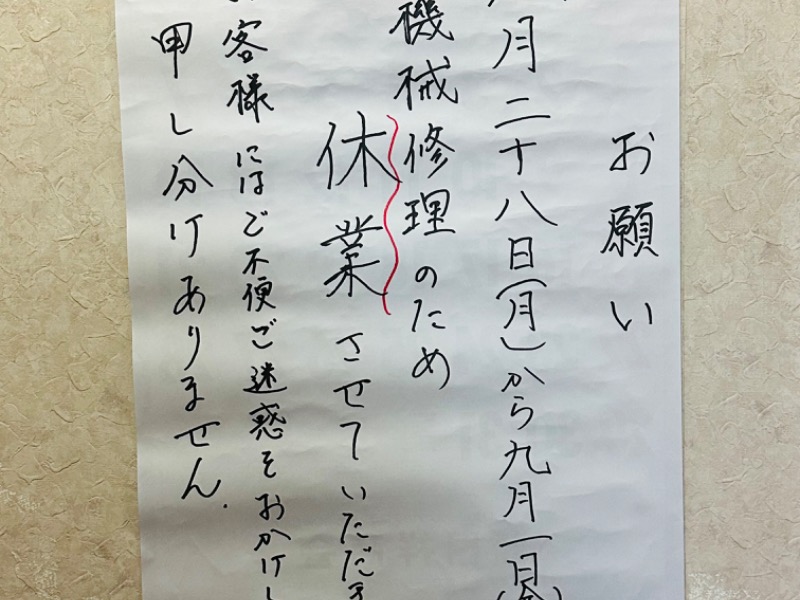 お願い
月二十八日(月)から九月一日(金)
機械修理のため
休業させていただき
客様にはご不便ご迷惑をおかけし
申し分けありません.